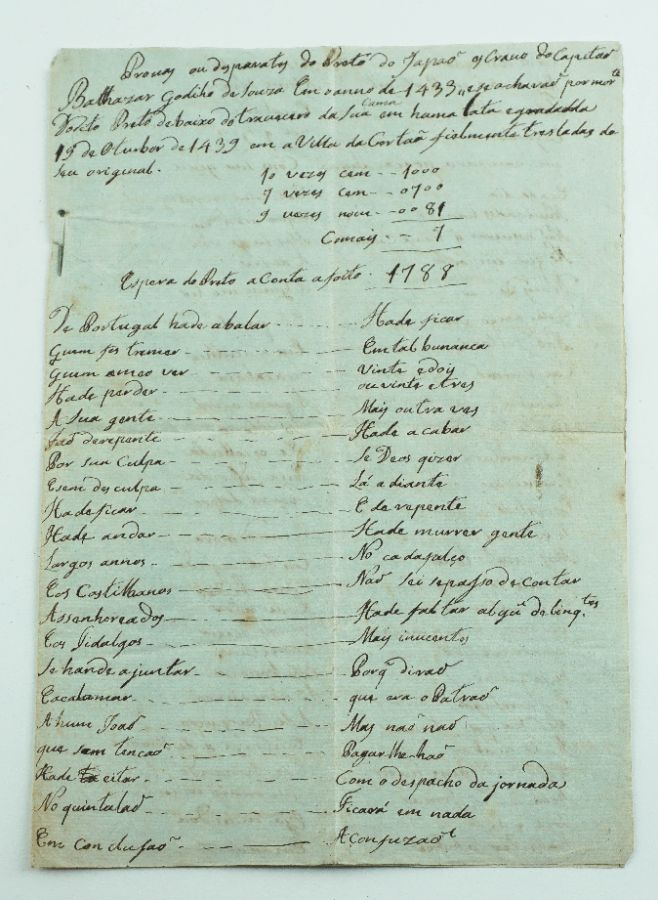 Provas ou disparates do Preto do Japaõ escravo do Capitaõ
Balthazar Godinho de Souza Em o anno de 1433, e se acharaõ por mor.ᵉ
do dito Preto debaixo do traveceiro da sua Cama em huma lata egradadda
19 de Otubor de 1439 em a Villa da Certaõ fielmente tresladas do
seu original.
10 vezes cem - - 1000
7 vezes cem - - 0700
9 vezes nove - - 0081
Comais - - 7
Espera do Preto a Conta a foito. 1788
De Portugal hade abalar - - - Hade ficar
Guem fes tremer - - - Em tal bunanca
Guem ameo ver - - - Vinte e dois
Hade perder - - - ou vinte e tres
A Sua gente - - - Mais outra ves
Taõ derepente - - - Hade acabar
Por sua Culpa - - - Se Deos qizer
E sem desculpa - - - Lá adiante
Hade ficar - - - E de repente
Hade andar - - - Hade murrer gente
Largos annos - - - No cadafalço
Eos Costilhanos - - - Naõ sei se passo de contar
Assenhoreados - - - Hade faltar algũ delinq.tes
Eos Fidalgos - - - Mais inucentes
Se hande ajuntar - - - Porq̃ diraõ
E acalamar - - - que era o Patraõ
A hum Joaõ - - - Mas naõ naõ
que sem tencaõ - - - Pagarlhe haõ
Hade citar - - - Com o despacho da jornada
No quintalaõ - - - Ficará em nada
Em concluſaõ - - - A confuzaõ